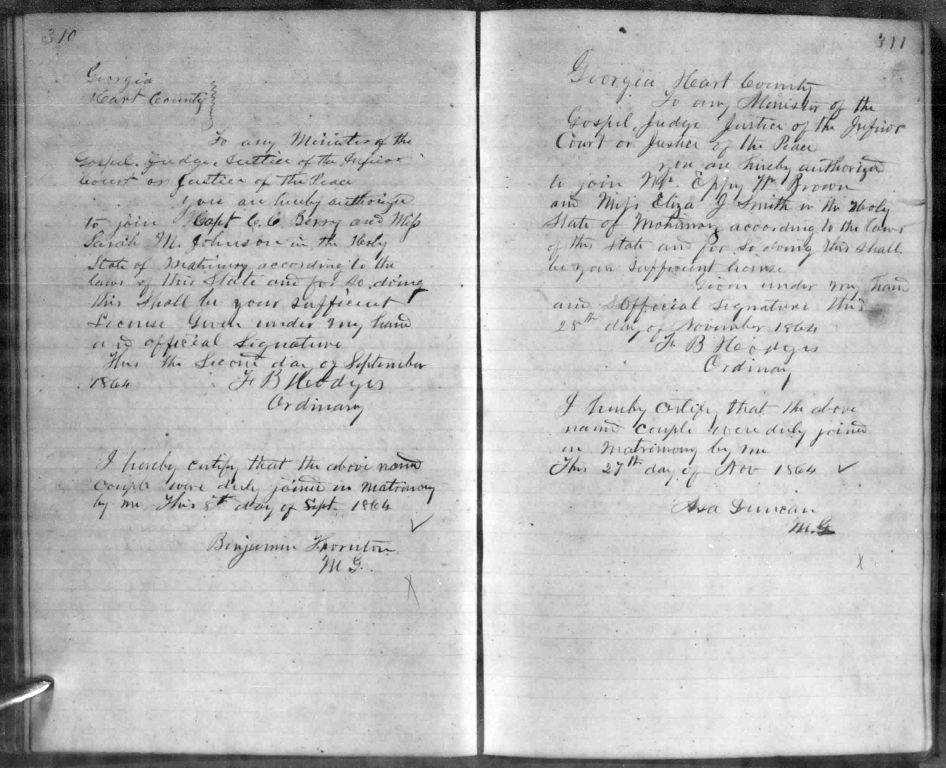 310
Georgia
Hart County
To any Minister of the
Gospel, Judge, Justice of the Inferior
Court or Justice of the Peace
you are hereby authorize
to join Capt C. C. Berry and Miss
Sarah M. Johnson in the Holy
State of Matrimony according to the
laws of this State and for so doing
this shall be your sufficient
License Given under my hand
and official signature
This the Second day of September
1864 F. B. Hodges
Ordinary
I hereby certify that the above named
couple were duly joined in matrimony
by me This 8th day of Sept. 1864
Benjamin Thornton
M G.
311
Georgia Hart County
To any Minister of the
Gospel, Judge Justice of the Inferior
Court or Justice of the Peace
you are hereby authorized
to join Mr. Eppy W. Brown
and Miss Eliza J Smith in the Holy
State of Matrimony according to the laws
of this State and for so doing this shall
be your sufficient license
Given under my hand
and Official signature this
25th day of November 1864
F B Hodges
Ordinary
I hereby certify that the above
named couple were duly joined
in matrimony by me
This 27th day of Nov 1864
Asa Duncan
M.G